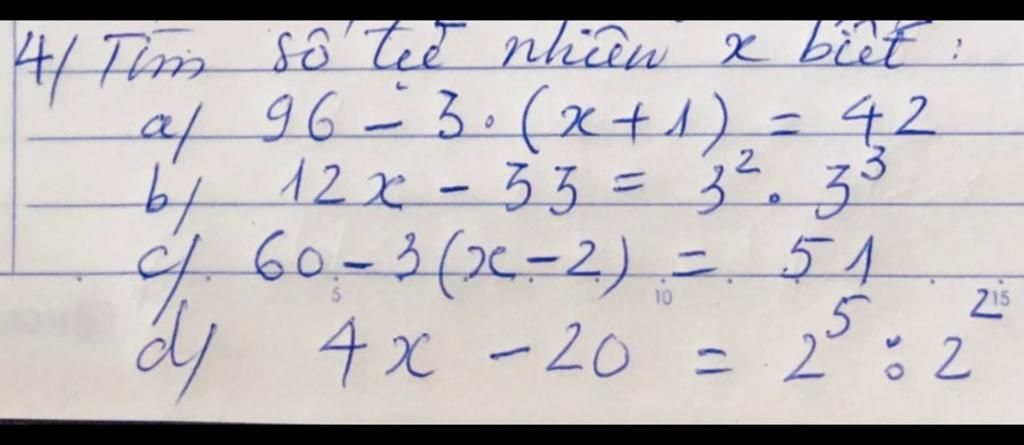 4/ Tìm số tự nhiên x biết :
a/ 96 - 3 . (x + 1) = 42
b/ 12x - 33 = 3² . 3³
c/ 60 - 3(x - 2) = 51
5 10 15
d/ 4x - 20 = 2⁵ : 2²